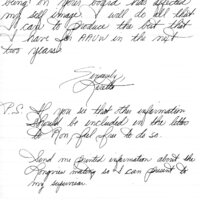 being on your board has affected
my self image. I will do all that
I can to produce the best that
I have for AAUW in the next
two years.
Sincerely,
P.S. If you see that other information
should be included in the letter
to feel free to do so.
Send me printed information about the
so I can present to
my